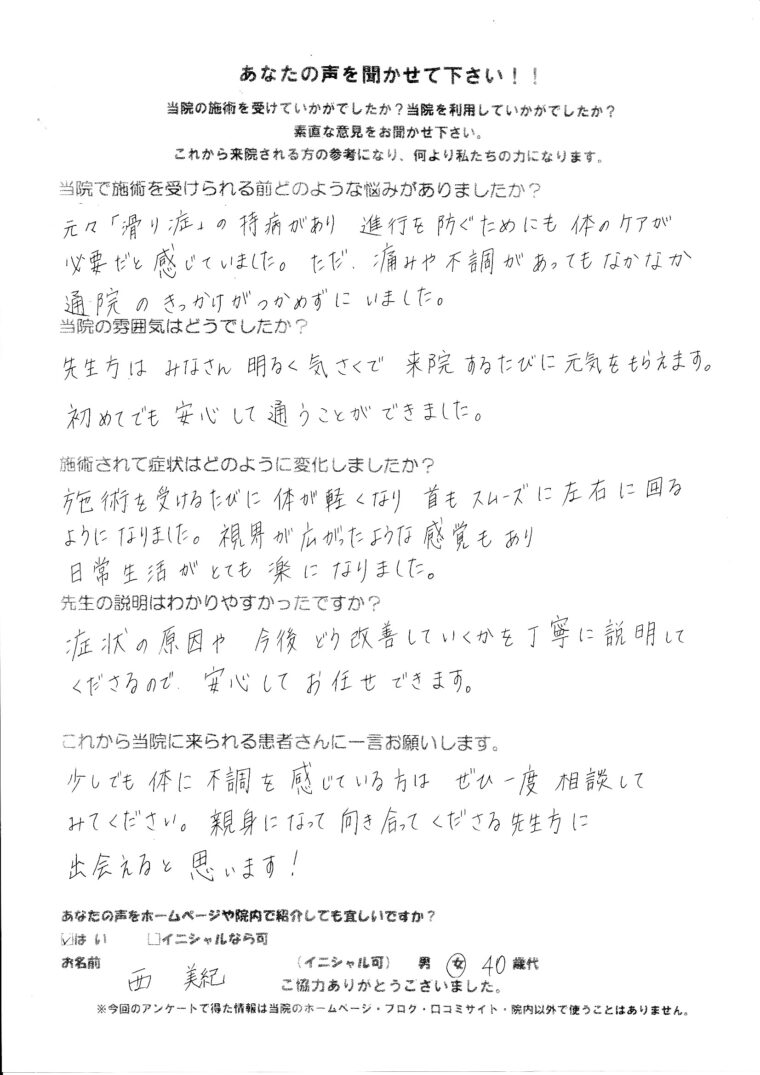 あなたの声を聞かせて下さい！！
当院の施術を受けていかがでしたか？当院を利用していかがでしたか？
素直な意見をお聞かせ下さい。
これから来院される方の参考になり、何より私たちの力になります。
当院で施術を受けられる前どのような悩みがありましたか？
元々「滑り症」の持病があり 進行を防ぐためにも体のケアが
必要だと感じていました。ただ、痛みや不調があってもなかなか
通院のきっかけがつかめずにいました。
当院の雰囲気はどうでしたか？
先生方はみなさん明るく気さくで 来院するたびに元気をもらえます。
初めてでも安心して通うことができました。
施術されて症状はどのように変化しましたか？
施術を受けるたびに体が軽くなり 首もスムーズに左右に回る
ようになりました。視界が広がったような感覚もあり
日常生活がとても楽になりました。
先生の説明はわかりやすかったですか？
症状の原因や 今後どう改善していくかを丁寧に説明して
くださるので、安心してお任せできます。
これから当院に来られる患者さんに一言お願いします。
少しでも体に不調を感じている方は ぜひ一度相談して
みてください。親身になって向き合ってくださる先生方に
出会えると思います！
あなたの声をホームページや院内で紹介しても宜しいですか？
☑はい □イニシャルなら可
お名前 西 美紀 （イニシャル可） 男 女 40歳代
ご協力ありがとうございました。
※今回のアンケートで得た情報は当院のホームページ・ブログ・口コミサイト・院内以外で使うことはありません。